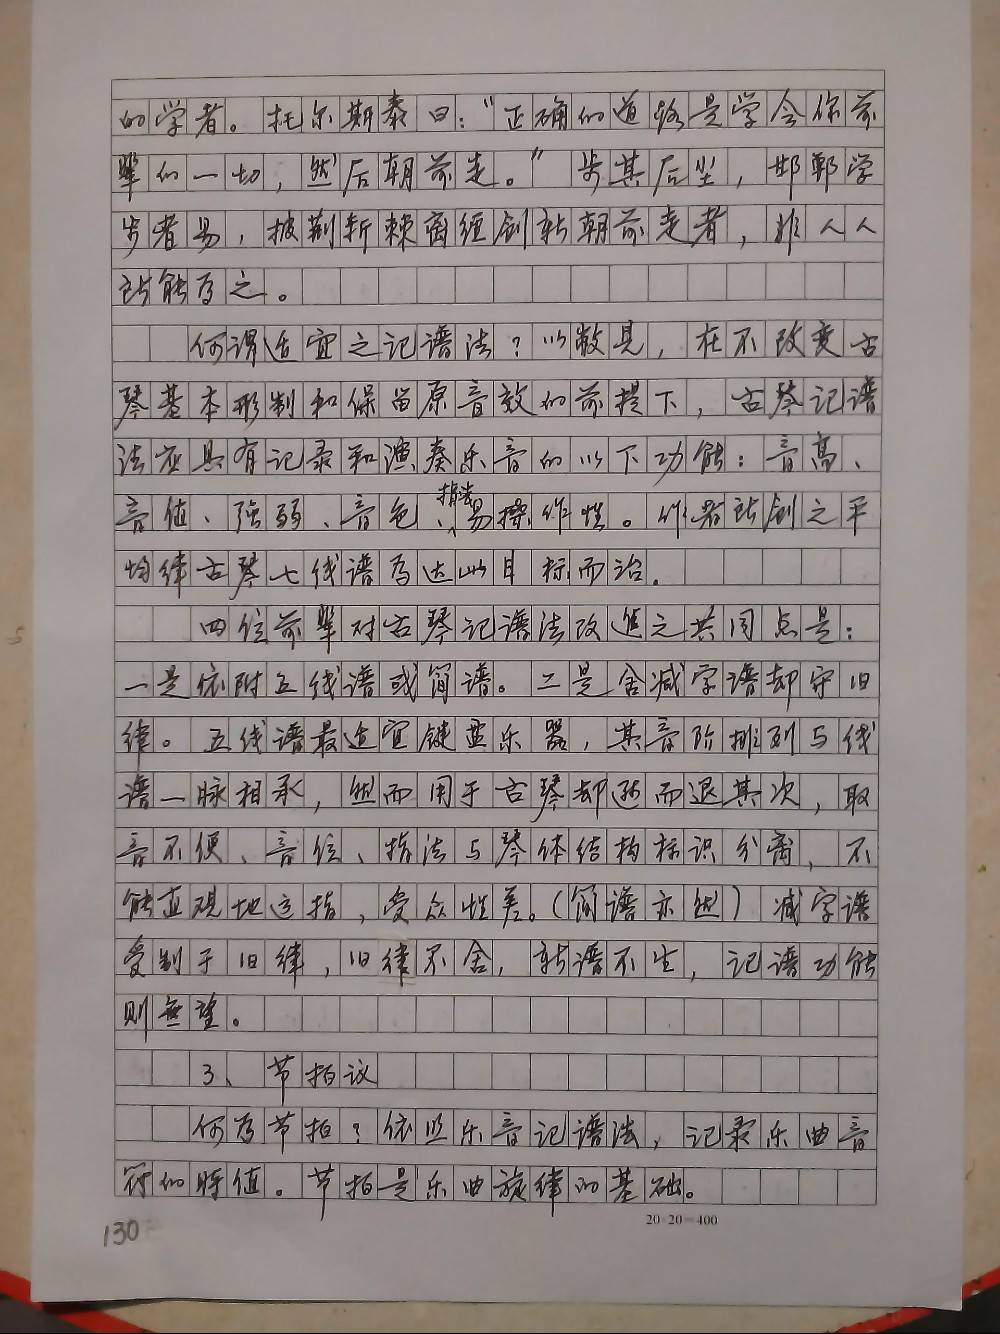 的学者。托尔斯泰曰：“正确的道路是学会你前
辈的一切，然后朝前走。”步其后尘，邯郸学
步者易，披荆斩棘离经创新朝前走者，非人人
所能为之。
何谓适宜之记谱法？以敝见，在不改变古
琴基本形制和保留原音效的前提下，古琴记谱
法应具有记录和演奏乐音的以下功能：音高、
音值、强弱、音色、指法易操作性。作者所创之平
均律古琴七线谱为达此目标而治.
四位前辈对古琴记谱法改进之共同点是：
一是依附五线谱或简谱。二是舍减字谱却守旧
律。五线谱最适宜键盘乐器，其音阶排列与线
谱一脉相承，然而用于古琴却 而退其次，取
音不便、音位、指法与琴体结构标识分离，不
能直观地运指，受众性差。（简谱亦然）减字谱
受制于旧律，旧律不舍，新谱不生，记谱功能
则無望。
3、节拍议
何为节拍？依照乐音记谱法，记录乐曲音
符的時值。节拍是乐曲旋律的基础。
20×20=400
130